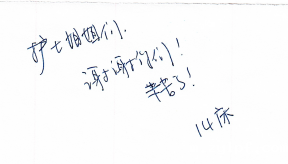 护士姐姐们.
谢谢你们!
辛苦了!
14床